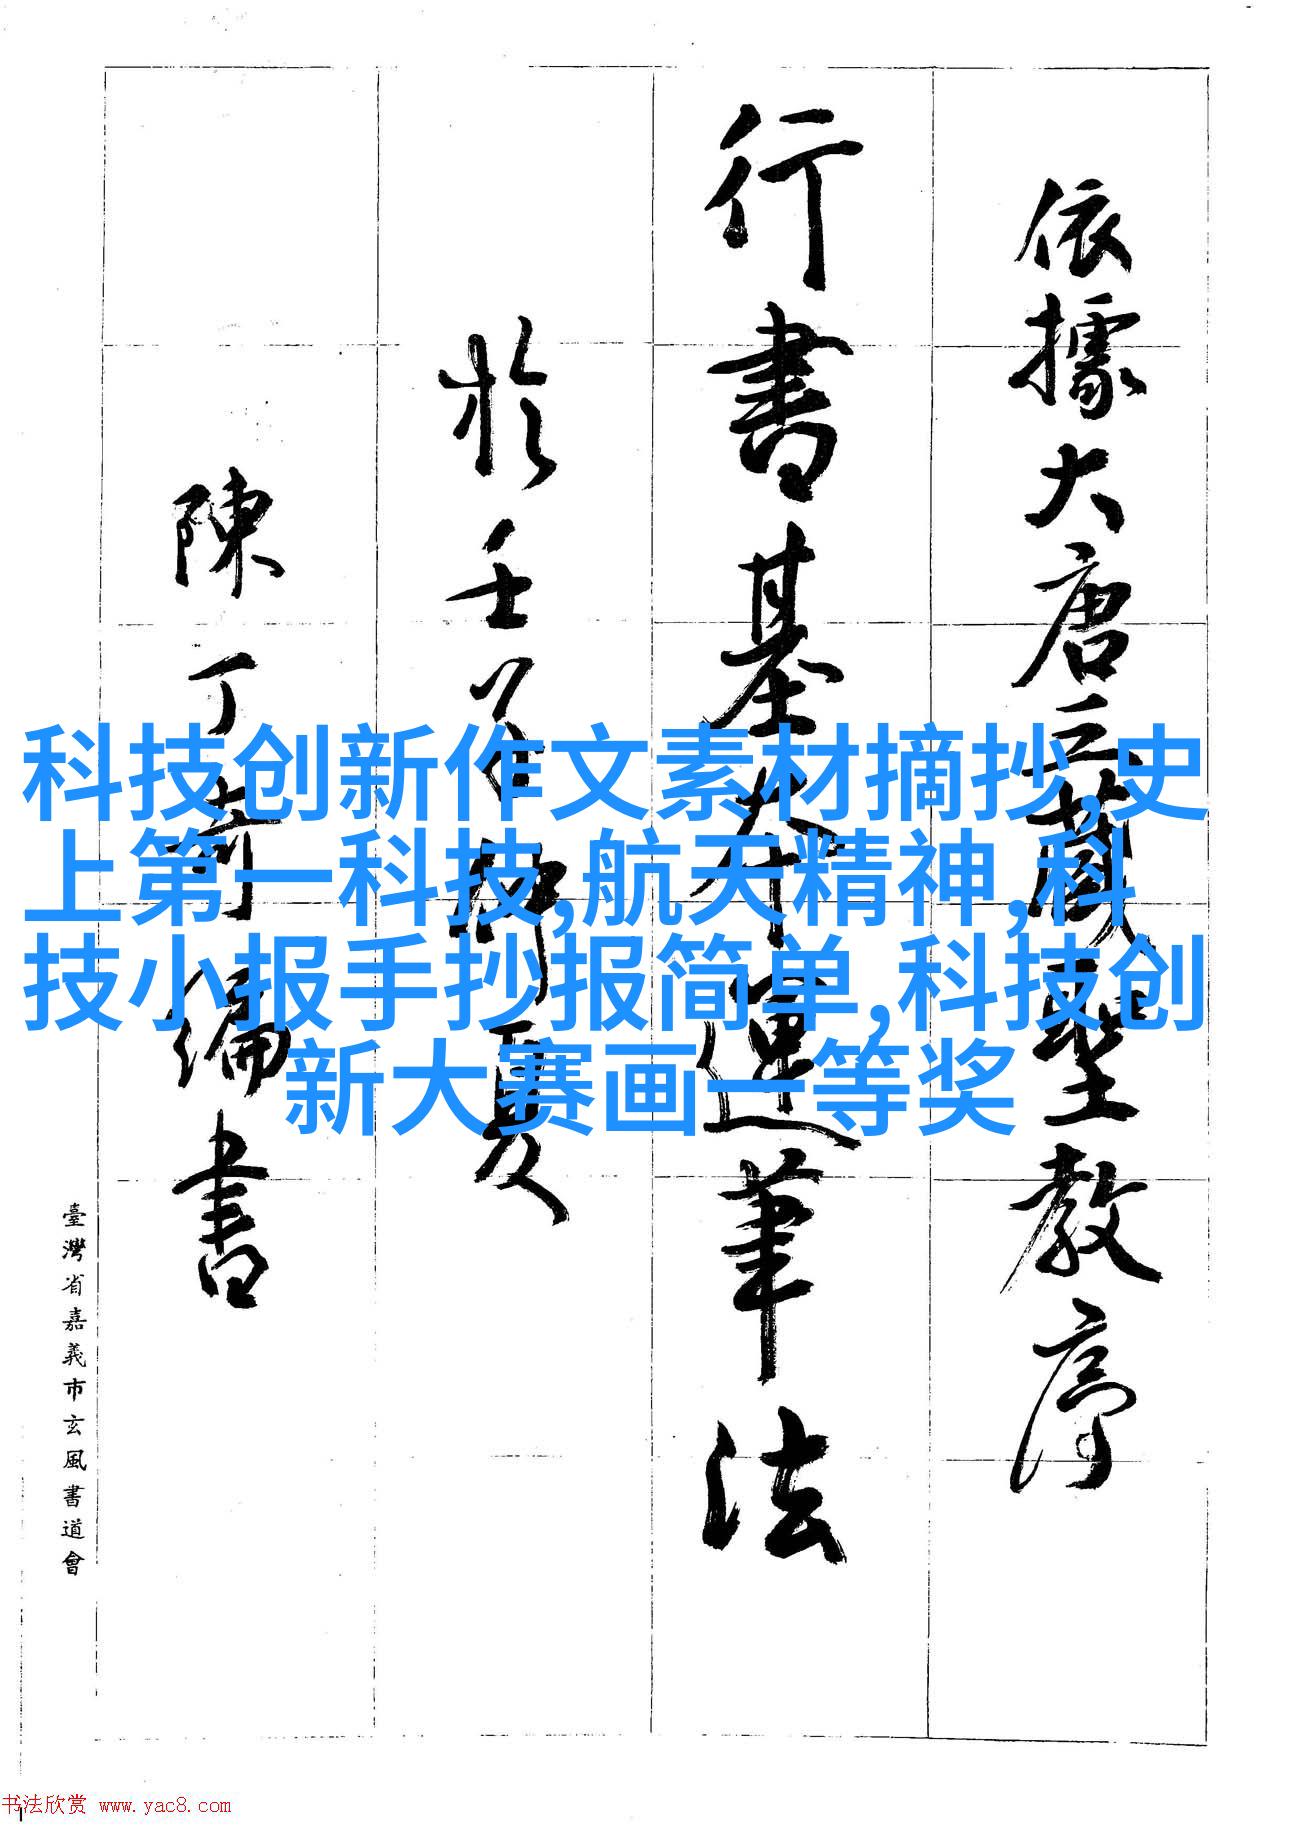 依據大唐三藏聖教序
行書基本運筆法
於壬午仲夏
陳丁奇編書
臺灣省嘉義市玄風書道會
科技创新作文素材摘抄,史
上第一科技,航天精神,科
技小报手抄报简单,科技创
新大赛画一等奖
书法欣赏 www.yac8.com